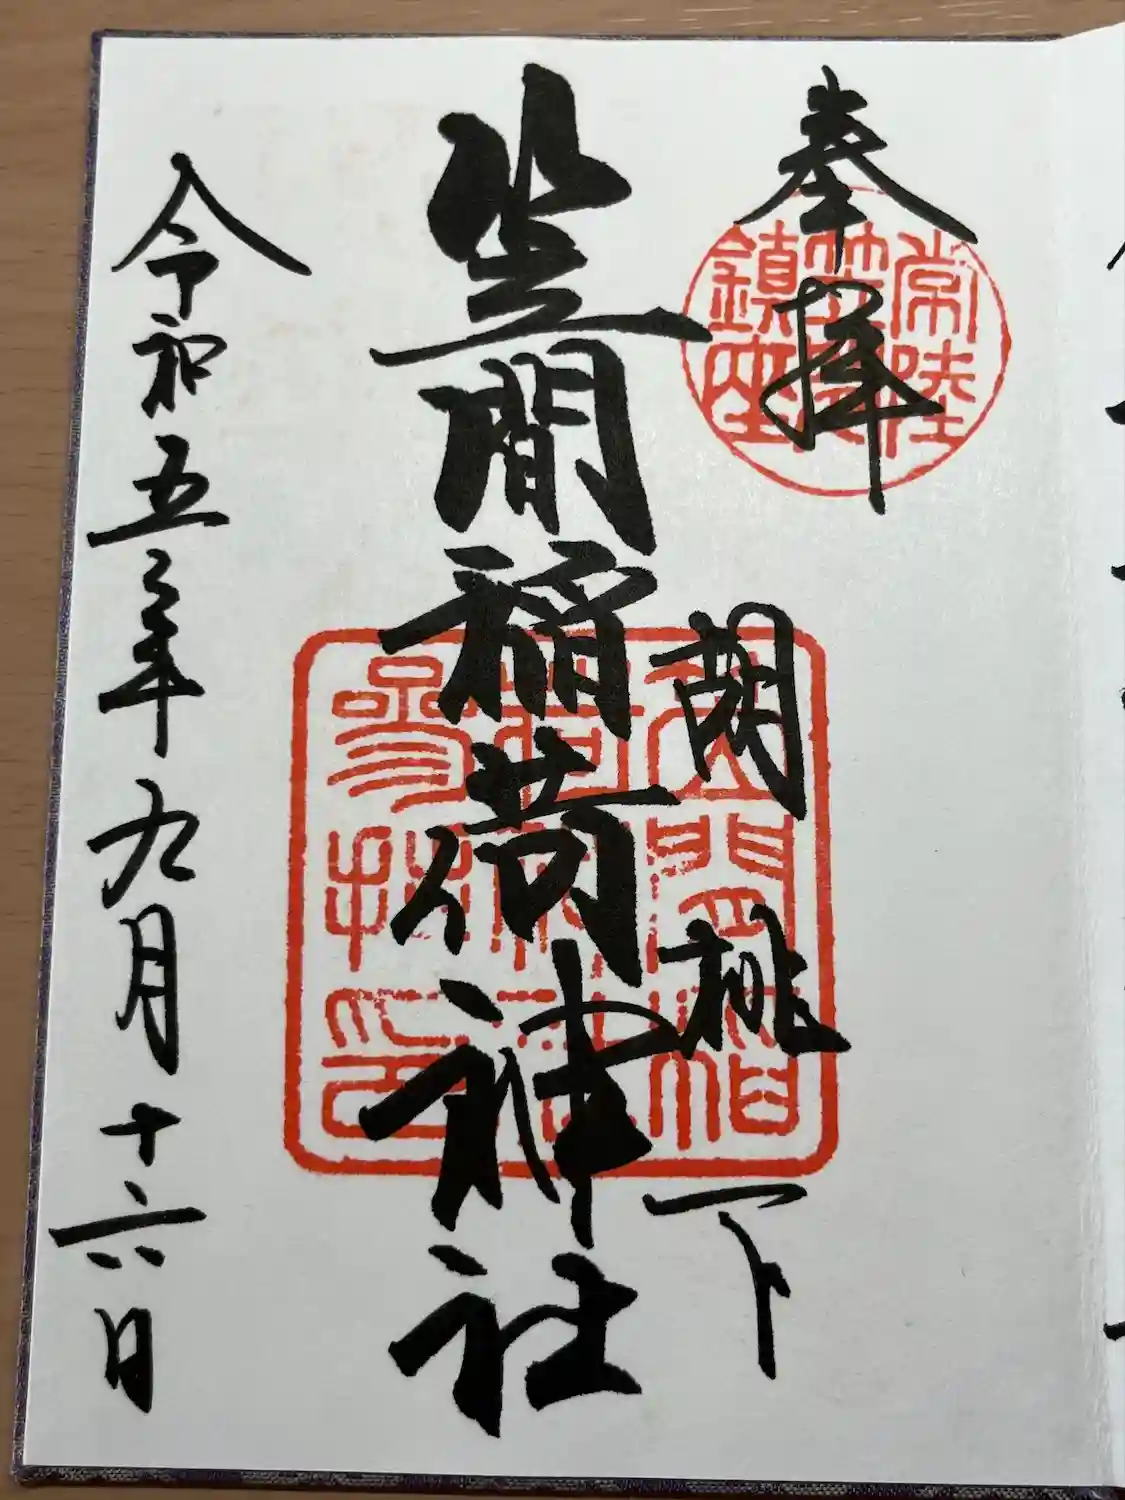 奉拝
常陸
笠間
鎮座
胡桃下
笠間稲荷神社
笠間稲
荷神社
參拝印
令和五年九月十六日